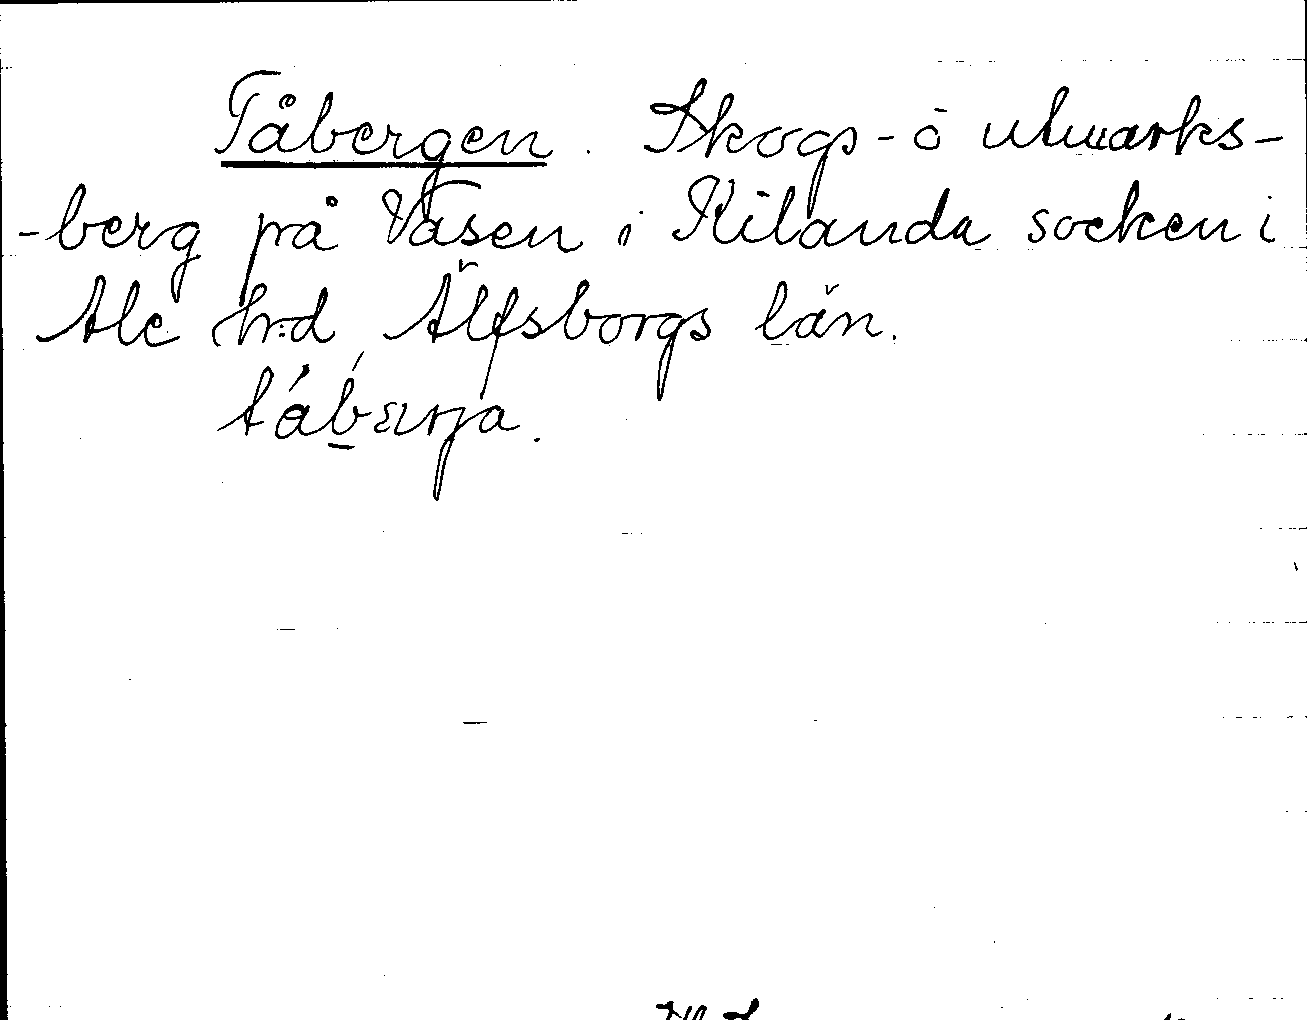 Tåbergen. Skogs- o utmarks-
-berg på Våsen i Kilanda socken i
Ale h:d, Älfsborgs län.
tá́bærja.